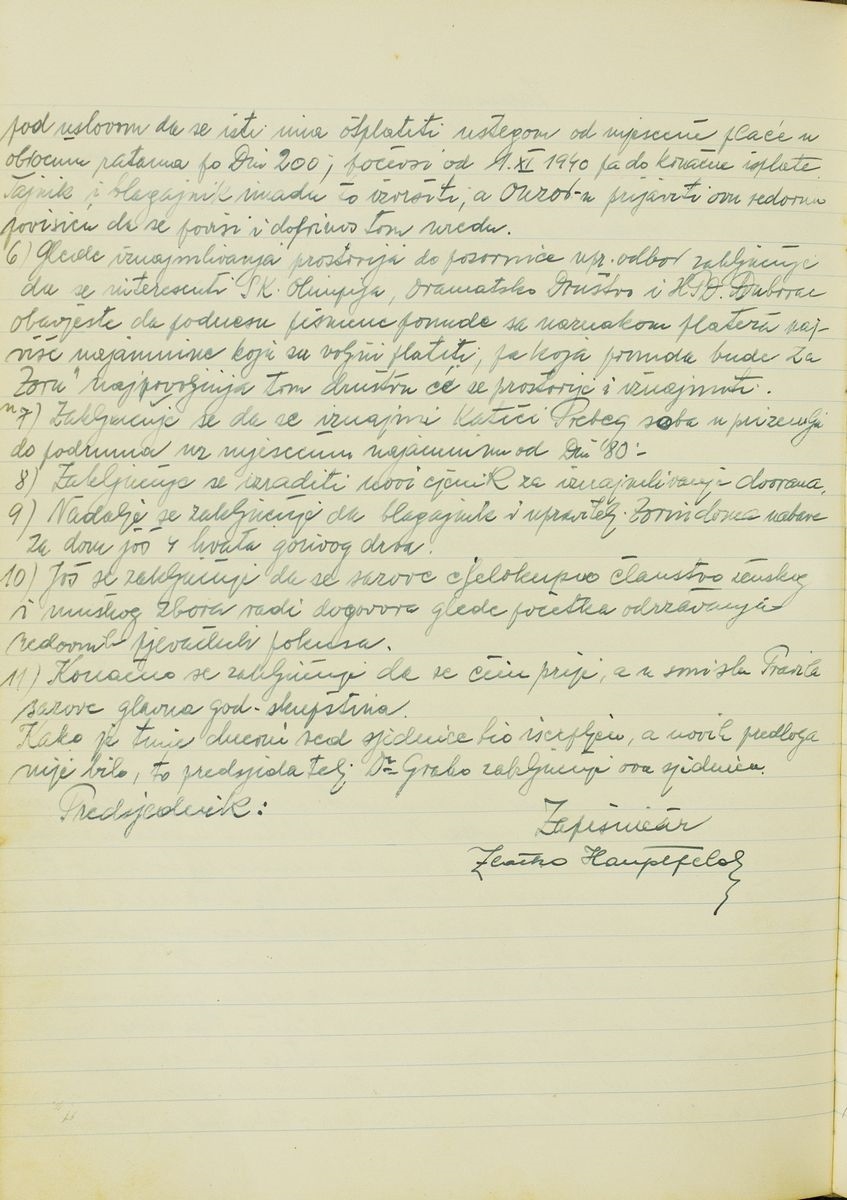 pod uslovom da se isti ima otplatiti ustegom od mjesečne plaće u
obročnim ratama po Din 200; počevši od 1. XI 1940 pa do konačne isplate
Tajnik i blagajnik imadu to izvršiti, a Ouzor-u prijaviti ovu redovnu
povišicu da se povisi i doprinos tom uredu.
6) Glede iznajmlivanja prostorija do pozornice upr. odbor zaključuje
da se interesenti ŠK. Olimpija, Dramatsko Društvo i HPD. Dubovac
obavjeste da podnesu pismene ponude sa naznakom plateža naj-
više najamnine koju su voljni platiti, pa koja ponuda bude za
"Zoru" najpovoljnija tom društvu će se prostorije i iznajmiti.
7) Zaključuje se da se iznajmi Katici Prebeg soba u prizemlju
do podruma uz mjesečnu najamninu od Din 80.-
8) Zaključuje se izraditi novi cjenik za iznajmlivanje dvorana.
9) Nadalje se zaključuje da blagajnik i upravitelj Zorin doma nabave
za dom još 4 hvata gorivog drva.
10) Još se zaključuje da se sazove cjelokupno članstvo ženskog
i muškog zbora radi dogovora glede početka održavanja
redovnih pjevačkih pokusa.
11) Konačno se zaključuje da se čim prije, a u smislu Pravila
sazove glavna god. skupština.
Kako je time dnevni red sjednice bio iscrpljen, a novih predloga
nije bilo, to predsjedatelj Dr. Grabo zaključuje ovu sjednicu.
Predsjednik:
Zapisničar
Zlatko Hauptfeld